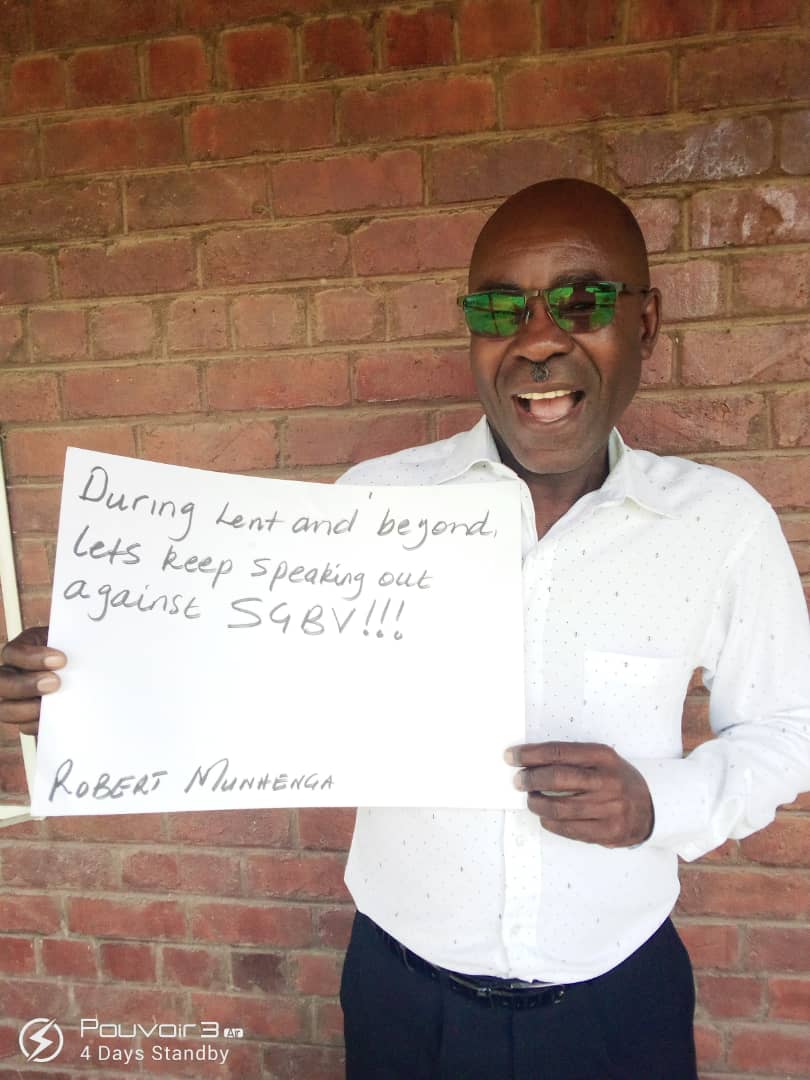 During Lent and beyond,
lets keep speaking out
against SGBV!!!
ROBERT MUNHENGA
Pouvoir 3 Air
4 Days Standby